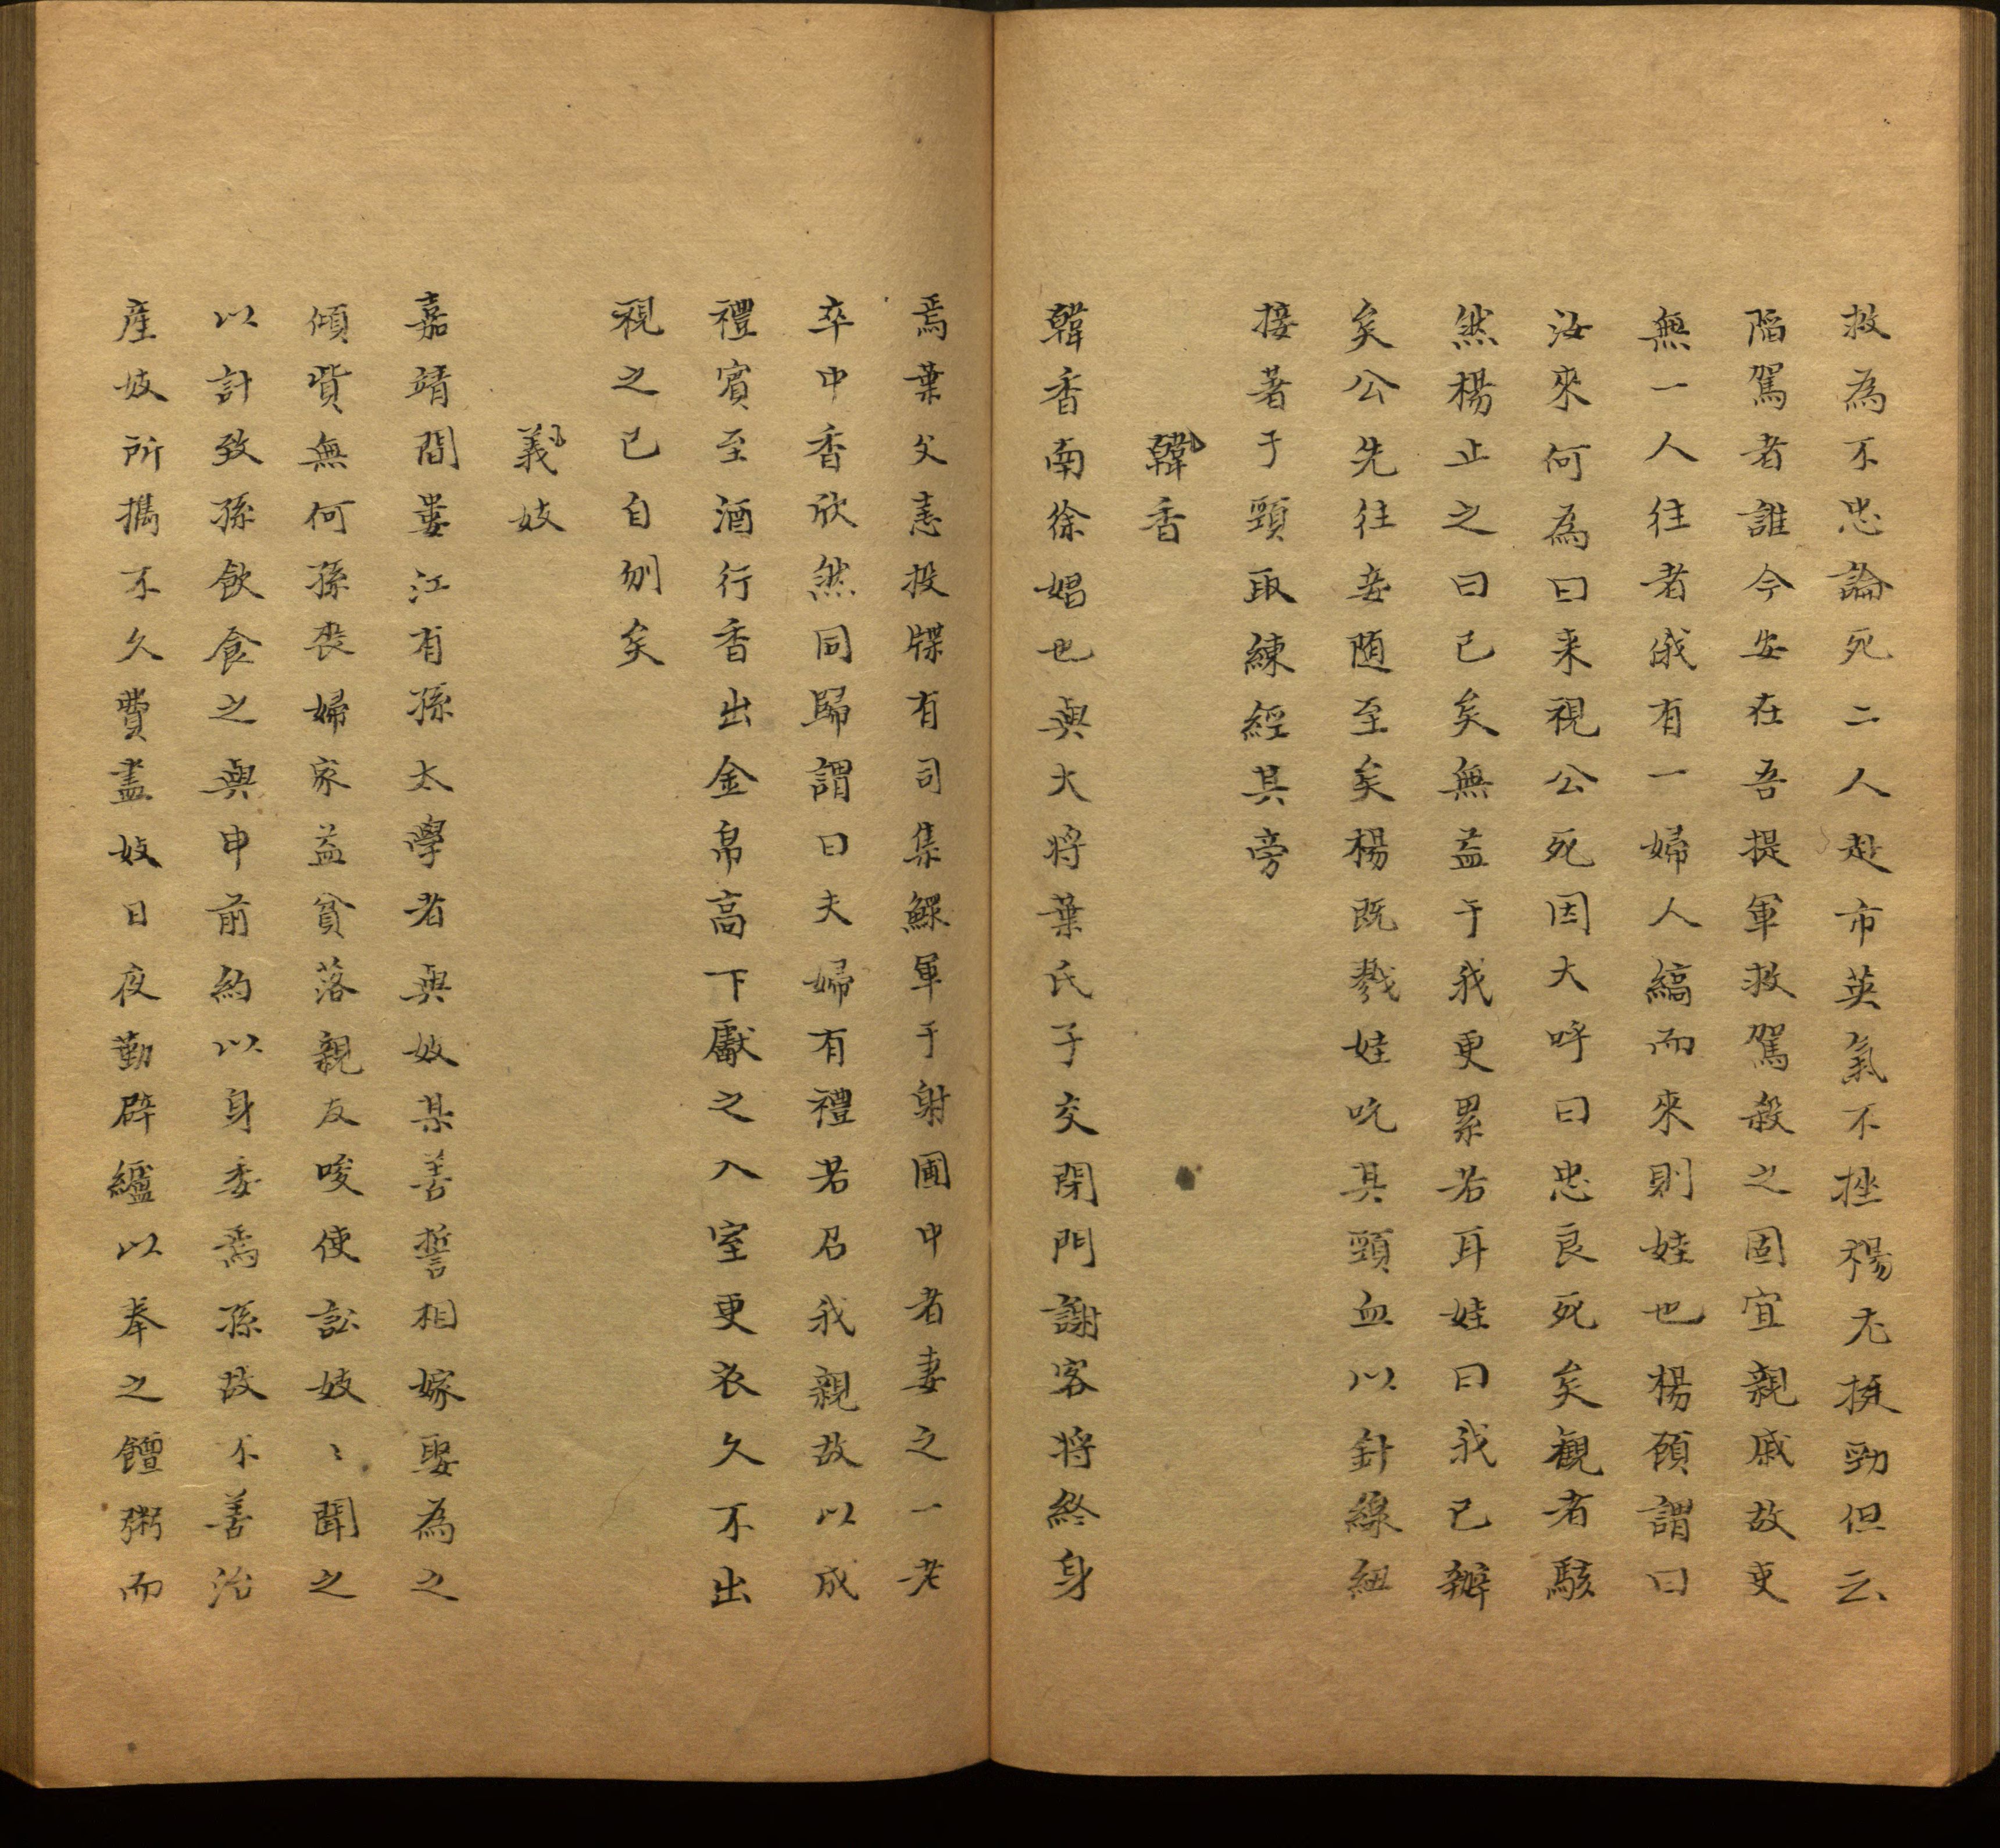 救為不忠論死二人赴市英氣不挫楊尤挺勁但云
陷駕者誰今安在吾提軍救駕殺之固宜親戚故吏
無一人往者俄有一婦人縞而來則娃也楊顧謂曰
汝來何為曰来視公死因大呼曰忠良死矣觀者駭
然楊止之曰已矣無益于我更累若耳娃曰我已辦
矣公先往妾随至矣楊既戮娃吮其頸血以針線紐
接著于頸取練經其旁
韓香
韓香南徐娼也與大將葉氏子交閉門謝客将終身
焉葉父恚投牒有司集鰥軍于射圃中者妻之一老
卒中香欣然同歸謂曰夫婦有禮若召我親故以成
禮賓至酒行香出金帛高下獻之入室更衣久不出
視之已自刎矣
義妓
嘉靖間婁江有孫太學者與妓某善誓相嫁娶為之
傾貲無何孫丧婦家益貧落親友唆使訟妓〻聞之
以計致孫飲食之與申前約以身委焉孫故不善治
産妓所攜不久費盡妓日夜勤辟纑以奉之饘粥而